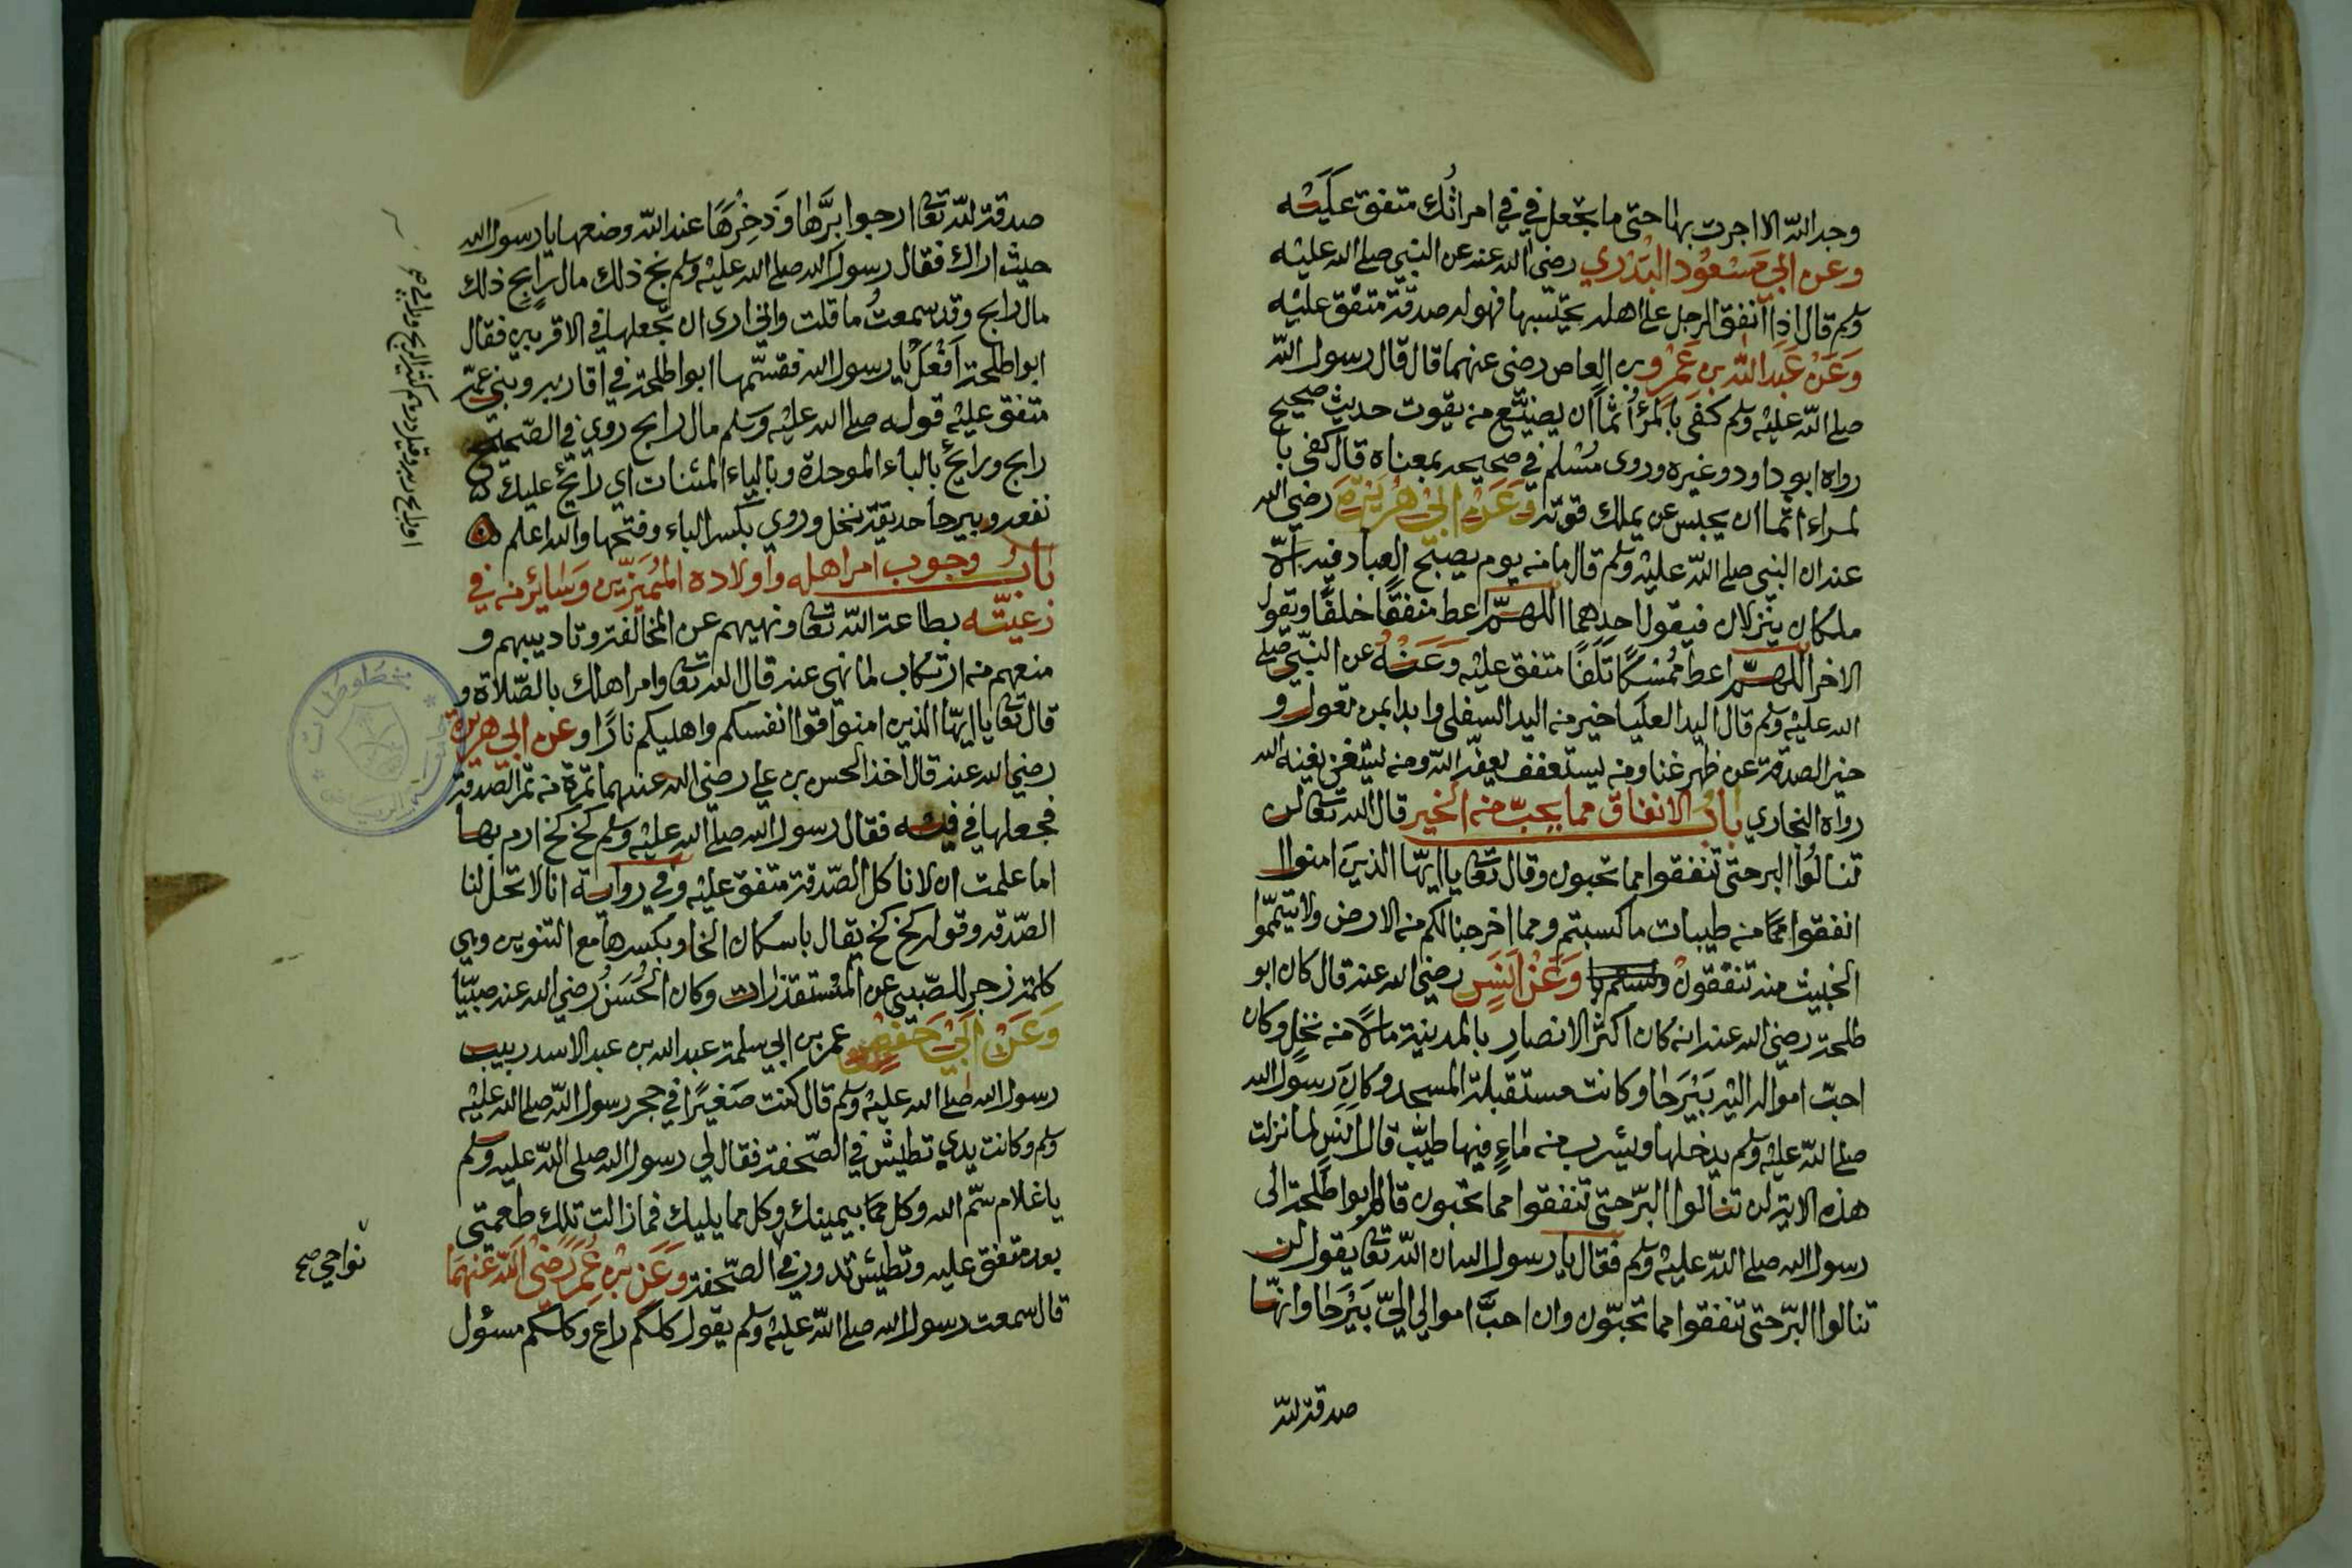 وجه الله الا اجرت بها حتى ما تجعل في في امراتك متفق عليه
وعن ابي مسعود البدري رضي الله عنه عن النبي صلى الله عليه
وسلم قال اذا انفق الرجل على اهله يحتسبها فهو له صدقة متفق عليه
وعن عبد الله بن عمرو بن العاص رضي عنهما قال قال رسول الله
صلى الله عليه وسلم كفى بالمرء اثما ان يضيع من يقوت حديث صحيح
رواه ابو داود وغيره وروى مسلم في صحيحه بمعناه قال كفى با
لمراء اثما ان يحبس عن يملك قوته وعن ابي هريرة رضي الله
عنه ان النبي صلى الله عليه وسلم قال ما من يوم يصبح العباد فيه الا
ملكان ينزلان فيقول احدهما اللهم اعط منفقا خلفا ويقول
الاخر اللهم اعط ممسكا تلفا متفق عليه وعنه عن النبي صلى
الله عليه وسلم قال اليد العليا خير من اليد السفلى وابدا بمن تعول و
خير الصدقة عن ظهر غنا ومن يستعفف يعفه الله ومن يستغن يغنه الله
رواه البخاري باب الانفاق مما يحب منه الخير قال الله تعالى لن
تنالوا البر حتى تنفقوا مما تحبون وقال تعالى يا ايها الذين امنوا
انفقوا مما من طيبات ما كسبتم ومما اخرجنا لكم من الارض ولا تيمموا
الخبيث منه تنفقون وعن انس رضي الله عنه قال كان ابو
طلحة رضي الله عنه انه كان اكثر الانصار بالمدينة مالا من نخل وكان
احب امواله اليه بيرحا وكانت مستقبلة المسجد وكان رسول الله
صلى الله عليه وسلم يدخلها ويشرب من ماء فيها طيب قال انس لما نزلت
هذه الاية لن تنالوا البر حتى تنفقوا مما تحبون قام ابو طلحة الى
رسول الله صلى الله عليه وسلم فقال يا رسول الله ان الله تعالى يقول لن
تنالوا البر حتى تنفقوا مما تحبون وان احب اموالي الي بيرحا وانها
صدقة لله
صدقة لله تعالى ارجوا برها وذخرها عند الله وضعها يا رسول الله
حيث اراك فقال رسول الله صلى الله عليه وسلم بخ ذلك مال رابح ذلك
مال رابح وقد سمعت ما قلت واني ارى ان تجعلها في الاقربين فقال
ابوا طلحة افعل يا رسول الله فقسمها ابوا طلحة في اقاربه وبني عمه
متفق عليه قوله صلى الله عليه وسلم مال رابح روي في الصحيح
رابح ورايح بالباء الموحدة وبالياء المثنات اي رايح عليك
نفعه وبيرحا حديقة نخل وروي بكسر الباء وفتحها والله اعلم
باب وجوب امر اهله واولاده المميزين وسائر من في
رعيته بطاعة الله تعالى ونهيهم عن المخالفة وتاديبهم و
منعهم من ارتكاب لما نهي عنه قال الله تعالى وامر اهلك بالصلاة و
قال تعالى يا ايها الذين امنوا قوا انفسكم واهليكم نارا وعن ابي هريرة
رضي الله عنه قال اخذ الحسن بن علي رضي الله عنهما تمرة من تمر الصدقة
فجعلها في فيه فقال رسول الله صلى الله عليه وسلم كخ كخ ارم بها
اما علمت ان لا ناكل الصدقة متفق عليه وفي رواية انا لا تحل لنا
الصدقة وقوله كخ كخ يقال باسكان الخا وبكسرها مع التنوين وهي
كلمة زجر للصبي عن المستقذرات وكان الحسن رضي الله عنه صبيا
وعن ابي حفص عمر بن ابي سلمة عبد الله بن عبد الاسد ربيب
رسول الله صلى الله عليه وسلم قال كنت صغيرا في حجر رسول الله صلى الله عليه
وسلم وكانت يدي تطيش في الصحفة فقال لي رسول الله صلى الله عليه وسلم
يا غلام سم الله وكل مما بيمينك وكل مما يليك فما زالت تلك طعمتي
بعد متفق عليه وتطيش تدور في الصحفة وعن بن عمر رضي الله عنهما
قال سمعت رسول الله صلى الله عليه وسلم يقول كلكم راع وكلكم مسؤل
نواحي صح
مخطوطات